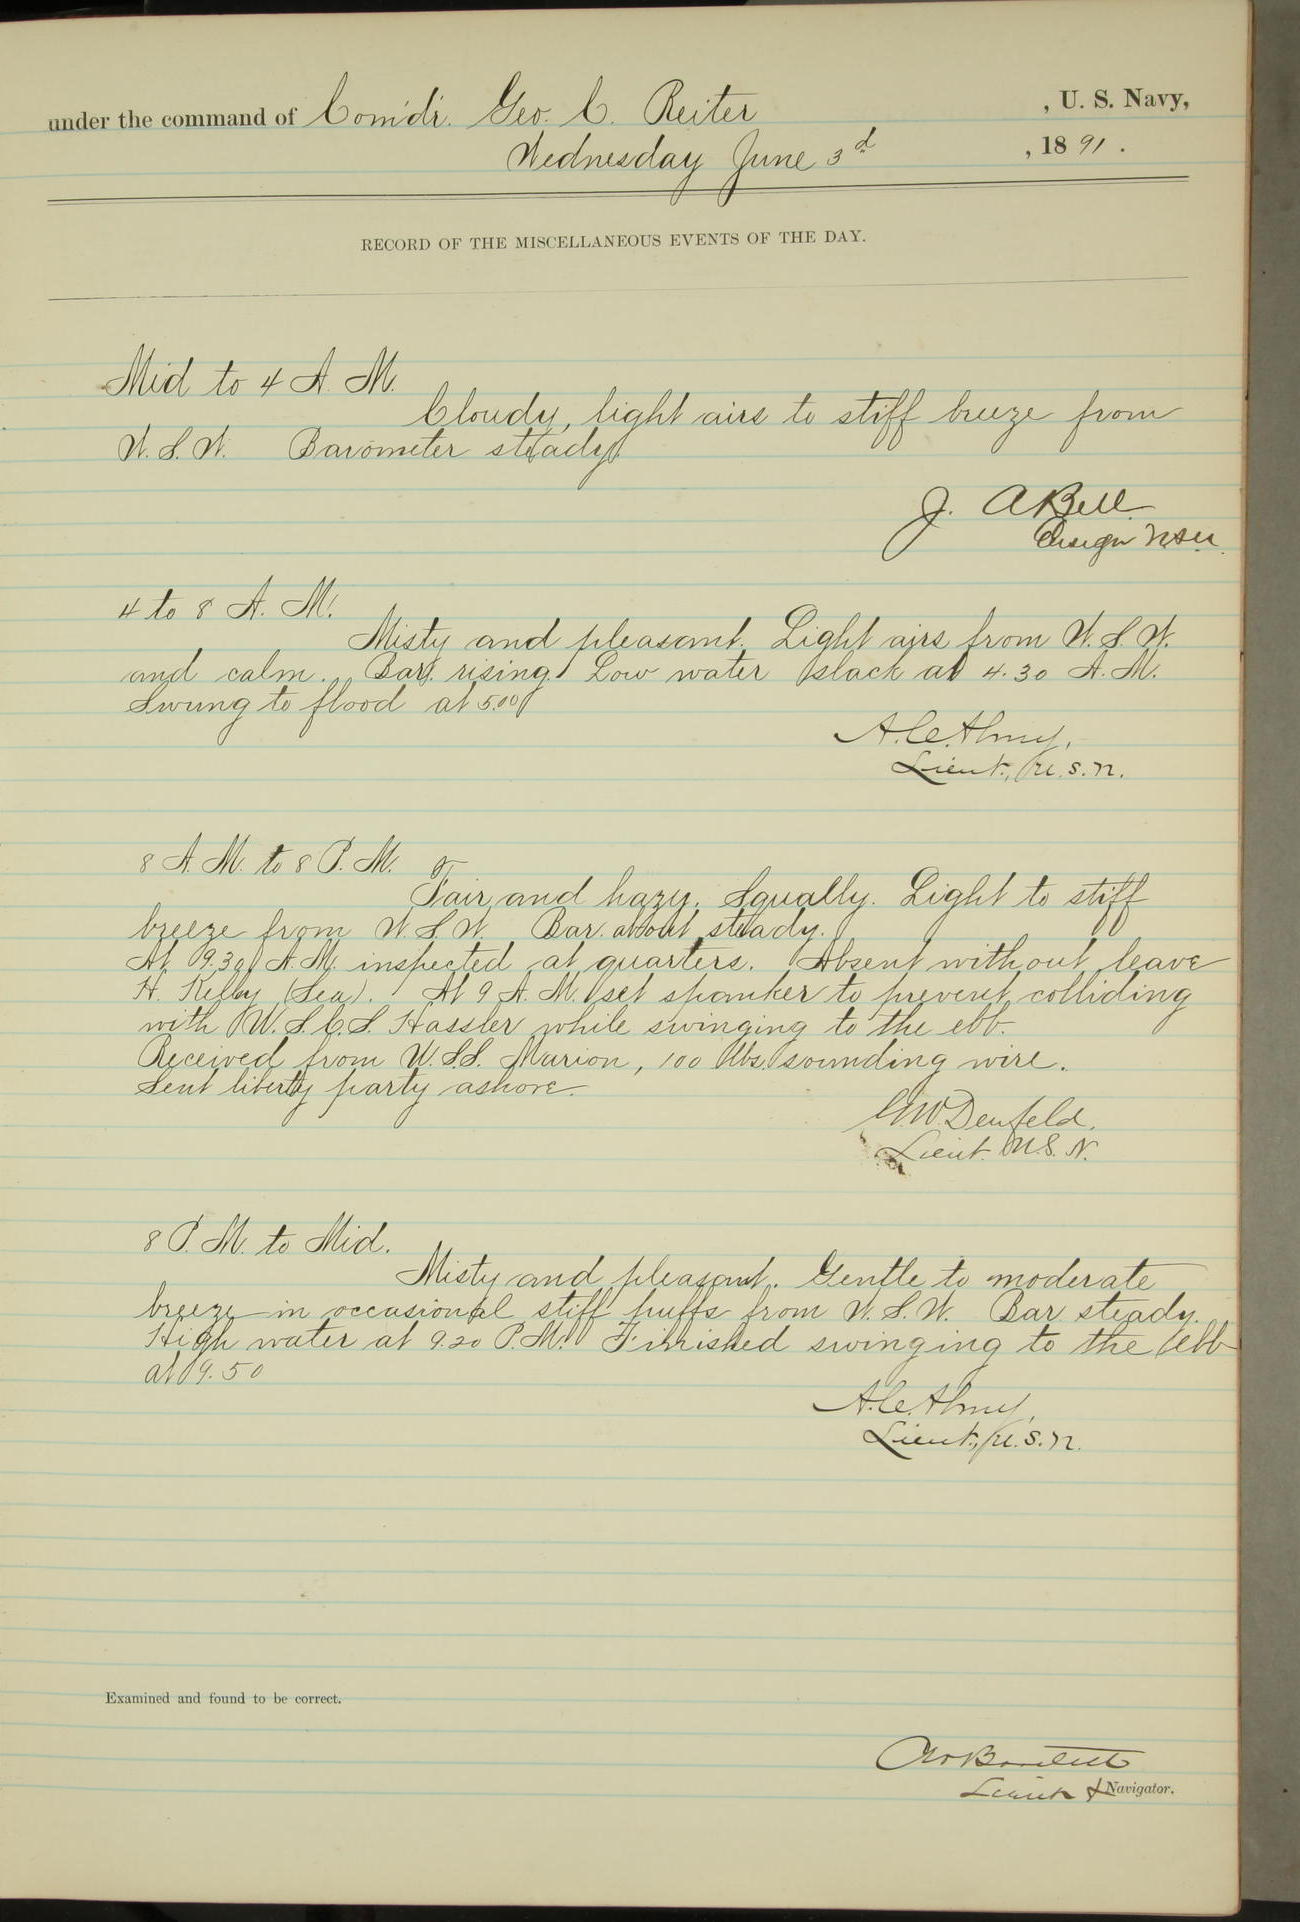 under the command of Com'd'r. Geo. C. Reiter, U. S. Navy,
Wednesday June 3d, 1891.
RECORD OF THE MISCELLANEOUS EVENTS OF THE DAY.
Mid to 4 A. M.
Cloudy, light airs to stiff breeze from
W. S. W. Barometer steady.
J. A Bell
Ensign USN
4 to 8 A. M.
Misty and pleasant. Light airs from W. S. W.
and calm. Bar. rising. Low water slack at 4.30 A. M.
Swung to flood at 5.00
A. C. Almy,
Lieut., U. S. N.
8 A. M. to 8 P. M.
Fair and hazy. Squally. Light to stiff
breeze from W. S. W. Bar. about steady.
At 9.30 A. M. inspected at quarters. Absent without leave
H. Kelly (Sea). At 9 A. M. set spanker to prevent colliding
with U. S. C. S. Hassler while swinging to the ebb.
Received from U. S. S. Marion, 100 lbs. sounding wire.
Sent liberty party ashore.
G. W. Denfeld.
Lieut. U. S. N.
8 P. M. to Mid.
Misty and pleasant. Gentle to moderate
breeze in occasional stiff puffs from W. S. W. Bar steady.
High water at 9.20 P. M. Finished swinging to the ebb
at 9.50
A. C. Almy,
Lieut., U. S. N.
Examined and found to be correct.
Bartlett
Lieut & Navigator.